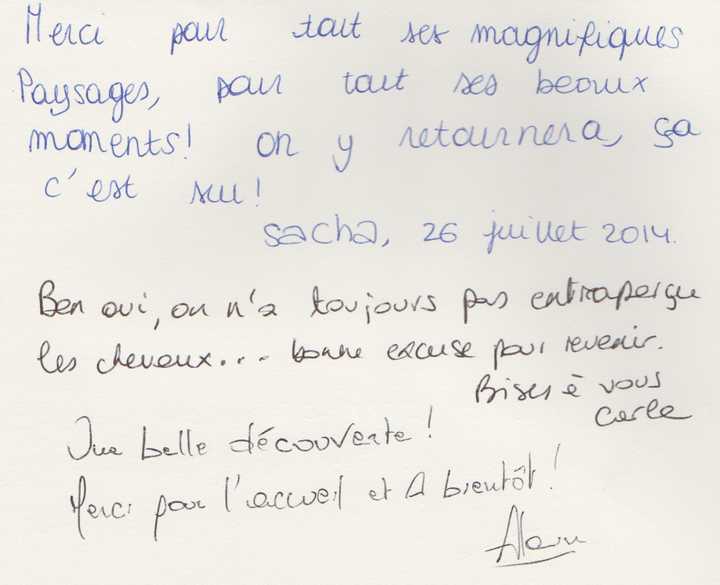 Merci pour tout ses magnifiques
Paysages, pour tout ses beaux
moments! on y retournera, ça
c'est sur!
sacha, 26 juillet 2014.
Ben oui, on n'a toujours pas entraperçue
les chevaux... bonne excuse pour revenir.
Bises à vous
Carla
Une belle découverte!
Merci pour l'accueil et A bientôt!
Alain